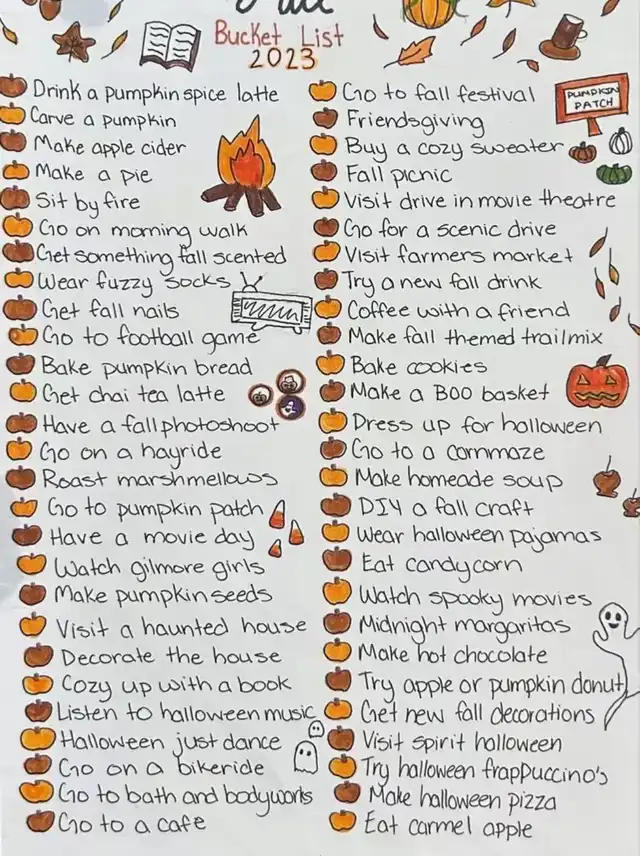 Fall
Bucket List
2023
Drink a pumpkin spice latte
Carve a pumpkin
Make apple cider
Make a pie
Sit by fire
Go on morning walk
Get something fall scented
Wear fuzzy socks
Get fall nails
Go to football game
Bake pumpkin bread
Get chai tea latte
Have a fall photoshoot
Go on a hayride
Roast marshmellows
Go to pumpkin patch
Have a movie day
Watch gilmore girls
Make pumpkin seeds
Visit a haunted house
Decorate the house
Cozy up with a book
Listen to halloween music
Halloween just dance
Go on a bikeride
Go to bath and bodyworks
Go to a cafe
Go to fall festival
Friendsgiving
Buy a cozy sweater
Fall picnic
Visit drive in movie theatre
Go for a scenic drive
Visit farmers market
Try a new fall drink
Coffee with a friend
Make fall themed trailmix
Bake cookies
Make a BOO basket
Dress up for halloween
Go to a cornmaze
Make homeade soup
DIY a fall craft
Wear halloween pajamas
Eat candycorn
Watch spooky movies
Midnight margaritas
Make hot chocolate
Try apple or pumpkin donut
Get new fall decorations
Visit spirit halloween
Try halloween frappuccino's
Make halloween pizza
Eat carmel apple
PUMPKIN
PATCH